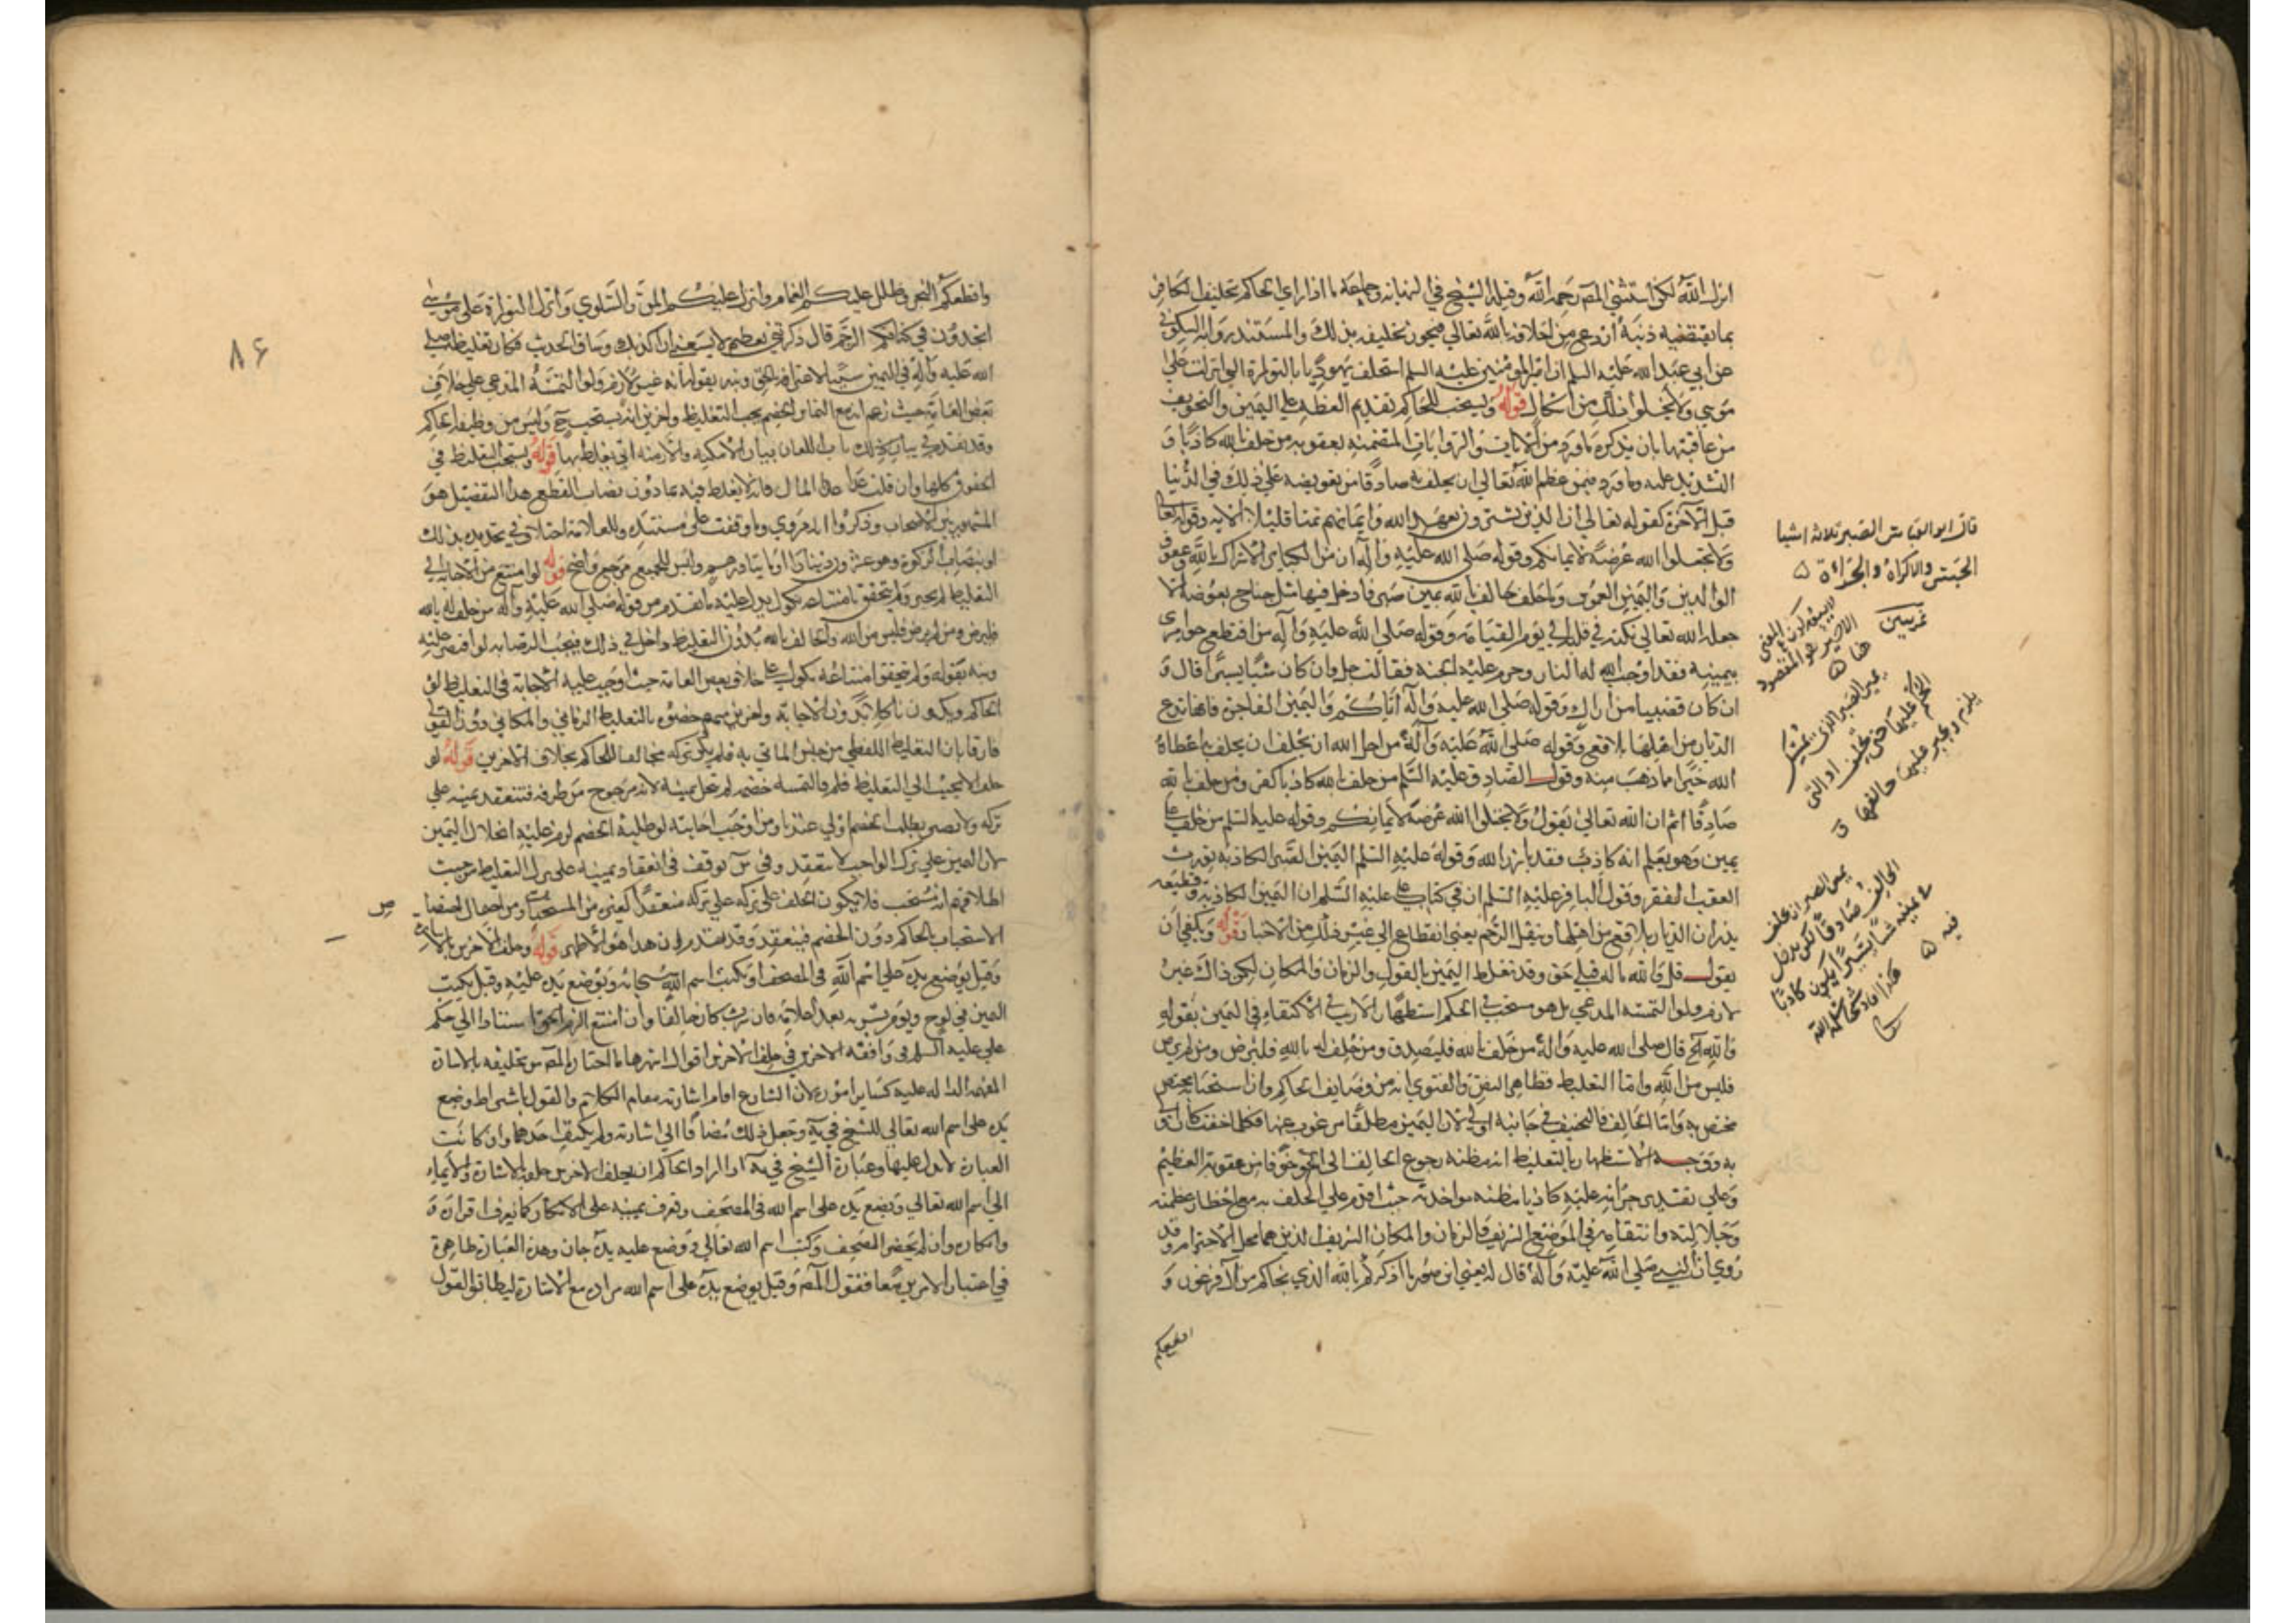 انزل الله لكن استثنى المصنف رحمه الله وقبله الشيخ في النهاية وجماعة ما اذا راى الحاكم تحليف الكافر
بما يقتضيه دينه أردع من احلافه بالله تعالى فيجوز تحليفه بذلك والمستند رواية السكوني
عن ابي عبد الله عليه السلم ان امير المؤمنين عليه السلم استحلف يهوديا بالتوراة التي انزلت على
موسى ولا يخلو ذلك من اشكال قوله ويستحب للحاكم تقديم العظة على اليمين والتخويف
من عاقبتها بان يذكره ما ورد من الآيات والروايات المتضمنة لعقوبة من حلف بالله كاذبا و
التشديد عليه وما ورد فيمن عظم الله تعالى ان يحلف به صادقا من تعويضه على ذلك في الدنيا
قبل الآخرة كقوله تعالى ان الذين يشترون بعهد الله وايمانهم ثمنا قليلا الاية وقوله تعالى
ولا تجعلوا الله عرضة لايمانكم وقوله صلى الله عليه وآله ان من الكباير الاشراك بالله وعقوق
الوالدين واليمين الغموس وما حلف حالف بالله يمين صبر فادخل فيها مثل جناح بعوضة الا
جعله الله تعالى نكتة في قلبه الى يوم القيامة وقوله صلى الله عليه وآله من اقتطع حق امرئ
بيمينه فقد اوجب الله له النار وحرم عليه الجنة فقالت رجل وان كان شيئا يسيرا قال و
ان كان قضيبا من اراك وقوله صلى الله عليه وآله اياكم واليمين الفاجرة فانها تدع
الديار من اهلها بلاقع وقوله صلى الله عليه وآله من اجل الله ان يحلف به اعطاه
الله خيرا مما ذهب منه وقول الصادق عليه السلم من حلف بالله كاذبا كفر ومن حلف بالله
صادقا اثم ان الله تعالى يقول ولا تجعلوا الله عرضة لايمانكم وقوله عليه السلم من حلف على
يمين وهو يعلم انه كاذب فقد بارز الله وقوله عليه السلم اليمين الصبر الكاذبة تورث
العقب الفقر وقول الباقر عليه السلم ان في كتاب علي عليه السلم ان اليمين الكاذبة وقطيعة
يذران الديار بلاقع من اهلها وينقل الرحم يعني انقطاع الى غير ذلك من الاخبار قوله ويكفي ان
يقول قل والله ماله قبلي حق وقد تغلظ اليمين بالقول والزمان والمكان لكن ذاك غير
لازم ولو التمسه المدعي بل هو مستحب في الحكم استظهارا لاريب في الاكتفاء في اليمين بقوله
والله الخ قال صلى الله عليه وآله من حلف بالله فليصدق ومن حلف له بالله فليرض ومن لم يرض
فليس من الله واما التغليظ فظاهر النص والفتوى انه من وظايف الحاكم وان استحبابه مختص
مختص به واما الحالف فالتخفيف في جانبه اولى لان اليمين مطلقا مرغوب عنها فكلما خفت كان اولى
به ووجه الاستظهار بالتغليظ انه مظنة رجوع الحالف الى الحق خوفا من عقوبة العظيم
وعلى تقدير جرأته عليه كاذبا مظنة مواخذته حيث اقدم على الحلف به مع اخطار عظمته
وجلالته وانتقامه في الموضع الشريف والزمان والمكان الشريف الذين هما محل الاحترام وقد
روي ان النبي صلى الله عليه وآله قال له يعني ابن صوريا اذكركم بالله الذي نجاكم من آل فرعون و
اقطعكم
قال ابو العباس الصبر ثلاثة اشيا
الحبس والاكراه والجرأة
ثم يبين
هنا
يمين الصبر الذي يمسك
الحكم عليها حتى يحلف او التي
يلزم ويجبر عليها حالفها
يمين الصبر ان يحلف
الحالف صادقا لكن يدخل
في يمينه شيئا يسيرا يكون كاذبا
فيه
هكذا افاد شيخنا سلمه الله
٨٦
واقطعكم البحر وظلل عليكم الغمام وانزل عليكم المن والسلوى وأنزل التوراة على موسى
اتجدون في كتابكم الرجم قال ذكرتني بعظيم لا يسعني ان اكذبك وساق الحديث فكان تغليظه صلى
الله عليه وآله في اليمين سببا لاعترافه بالحق ونبه بقوله انه غير لازم ولو التمسه المدعي على خلاف
بعض العامة حيث زعم انه مع التماس الخصم يجب التغليظ واخرين انه يستحب ح وليس من وظيفة الحاكم
وقد تقدم في باب اللعان بيان الامكنة والازمنة التي يغلظ بها قوله ويستحب التغليظ في
الحقوق كلها وان قلت عدا المال فانه لا يغلظ فيه بما دون نصاب القطع هذا التفصيل هو
المشهور بين الاصحاب وذكروا انه مروي وما وقفت على مستنده وللعامة اختلاف في تحديده بذلك
او بنصاب الزكوة وهو عشرون دينارا او مائتا درهم وليس للجميع مرجع واضح قوله لو امتنع من الاجابة الى
التغليظ لم يجبر ولم يتحقق بامتناعه نكول يدل عليه ما تقدم من قوله صلى الله عليه وآله من حلف له بالله
فليرض ومن لم يرض فليس من الله والحالف بالله بدون التغليظ داخل في ذلك فيجب الرضا به لو اقتصر عليه
ونبه بقوله ولم يتحقق امتناعه نكول على خلاف بعض العامة حيث اوجب عليه الاجابة في التغليظ لو
الحاكم ويكون ناكلا بدون الاجابة واخرين منهم خصوه بالتغليظ الزماني والمكاني دون القولي
فارقا بان التغليظ اللفظي من جنس الماتي به فلم يكن تركه مخالفا للحاكم بخلاف الاخرين قوله لو
حلف لا يجيب الى التغليظ فلو التمسه خصمه لم تنحل يمينه لانه مرجوح من طرفه فتنعقد يمينه على
تركه ولا يصير بطلب الخصم اولى عندنا ومن اوجب اجابته لو طلبه الخصم لزم عليه انحلال اليمين
لان اليمين على ترك الواجب لا تنعقد وفي س توقف في انعقاد يمينه على ترك التغليظ من حيث
اطلاقهم انه مستحب فلا يكون الحلف على تركه منعقدا كغيره من المستحبات ومن احتمال اختصاص
الاستحباب بالحاكم دون الخصم فينعقد وقد تقدم ان هذا هو الاظهر قوله وحلف الاخرس بالاشارة
وقيل يوضع يده على اسم الله في المصحف او يكتب اسم الله سبحانه ويوضع يده عليه وقيل يكتب
اليمين في لوح ويؤمر بشربه بعد اعلامه فان شربه كان حالفا وان امتنع الزم الحق استنادا الى حكم
علي عليه السلم في واقعة الاخرس في حلف الاخرس اقوال اشهرها ما اختاره المصنف من تحليفه بالاشارة
المفهمة الدالة عليه كساير اموره لان الشارع اقام اشارته مقام الكلام والقول باشتراط وضع
يده على اسم الله تعالى للشيخ في ية وجعل ذلك مضافا الى اشارته ولم يكتف باحدهما وان كانت
العبارة لا تدل عليها وعبارة الشيخ في ية اذا اراد الحاكم ان يحلف الاخرس حلفه بالاشارة والايماء
الى اسم الله تعالى وتضع يده على اسم الله في المصحف وتعرف يمينه على الانكار كما تعرف اقراره و
وانكاره وان لم يحضر المصحف وكتب اسم الله تعالى ووضع عليه يده جاز وهذه العبارة ظاهرة
في اعتبار الامرين معا فقول المصنف وقيل يوضع يده على اسم الله مراده مع الاشارة ليطابق القول